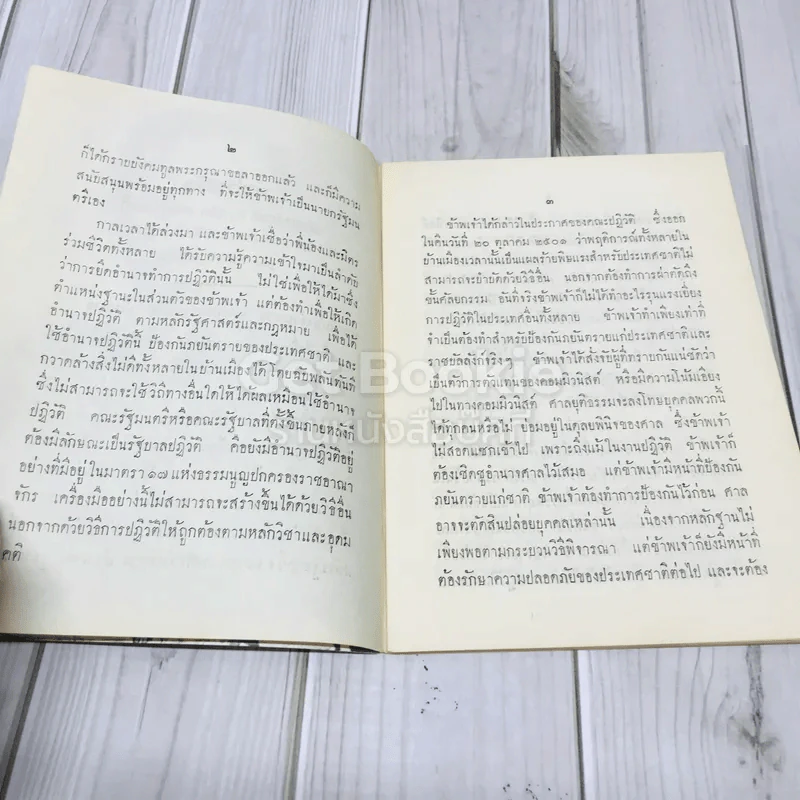 ๒
ก็ได้กราบบังคมทูลพระกรุณาขอลาออกแล้ว และก็มีความ
สนับสนุนพร้อมอยู่ทุกทาง ที่จะให้ข้าพเจ้าเป็นนายกรัฐมน
ตรีเอง
กาลเวลาได้ล่วงมา และข้าพเจ้าเชื่อว่าพี่น้องและมิตร
ร่วมชีวิตทั้งหลาย ได้รับความรู้ความเข้าใจมาเป็นลำดับ
ว่าการยึดอำนาจทำการปฏิวัตินั้น ไม่ใช่เพื่อให้ได้มาซึ่ง
ตำแหน่งฐานะในส่วนตัวของข้าพเจ้า แต่ต้องทำเพื่อให้เกิด
อำนาจปฏิวัติ ตามหลักรัฐศาสตร์และกฎหมาย เพื่อได้
ใช้อำนาจปฏิวัตินี้ ป้องกันภยันตรายของประเทศชาติ และ
กวาดล้างสิ่งไม่ดีทั้งหลายในบ้านเมืองได้โดยฉับพลันทันที
ซึ่งไม่สามารถจะใช้วิถีทางอื่นใดให้ได้ผลเหมือนใช้อำนาจ
ปฏิวัติ คณะรัฐมนตรีหรือคณะรัฐบาลที่ตั้งขึ้นภายหลังก็
ต้องมีลักษณะเป็นรัฐบาลปฏิวัติ คือยังมีอำนาจปฏิวัติอยู่
อย่างที่มีอยู่ในมาตรา ๑๗ แห่งธรรมนูญปกครองราชอาณา
จักร เครื่องมืออย่างนี้ไม่สามารถจะสร้างขึ้นได้ด้วยวิธีอื่น
นอกจากด้วยวิธีการปฏิวัติให้ถูกต้องตามหลักวิชาและอุดม
คติ
๓
ข้าพเจ้าได้กล่าวในประกาศของคณะปฏิวัติ ซึ่งออก
ในคืนวันที่ ๒๐ ตุลาคม ๒๕๐๑ ว่าพฤติการณ์ทั้งหลายใน
บ้านเมืองเวลานั้นเป็นแผลร้ายพิษแรงสำหรับประเทศชาติไม่
สามารถจะบำบัดด้วยวิธีอื่น นอกจากต้องทำการผ่าตัดถึง
ขั้นศัลยกรรม อันที่จริงข้าพเจ้าก็ไม่ได้ทำอะไรรุนแรงเยี่ยง
การปฏิวัติในประเทศอื่นทั้งหลาย ข้าพเจ้าทำเพียงเท่าที่
จำเป็นต้องทำสำหรับป้องกันภยันตรายแก่ประเทศชาติและ
ราชบัลลังก์จริงๆ ข้าพเจ้าได้สั่งจับผู้ที่ทราบกันแน่ชัดว่า
เป็นตัวการตัวแทนของคอมมิวนิสต์ หรือมีความโน้มเอียง
ไปในทางคอมมิวนิสต์ ศาลยุติธรรมจะลงโทษบุคคลพวกนี้
ได้ทุกคนหรือไม่ ย่อมอยู่ในดุลยพินิจของศาล ซึ่งข้าพเจ้า
ไม่สอดแทรกเข้าไป เพราะถึงแม้ในงานปฏิวัติ ข้าพเจ้าก็
ต้องเชิดชูอำนาจศาลไว้เสมอ แต่ข้าพเจ้ามีหน้าที่ป้องกัน
ภยันตรายแก่ชาติ ข้าพเจ้าต้องทำการป้องกันไว้ก่อน ศาล
อาจจะตัดสินปล่อยบุคคลเหล่านั้น เนื่องจากหลักฐานไม่
เพียงพอตามกระบวนวิธีพิจารณา แต่ข้าพเจ้าก็ยังมีหน้าที่
ต้องรักษาความปลอดภัยของประเทศชาติต่อไป และจะต้อง